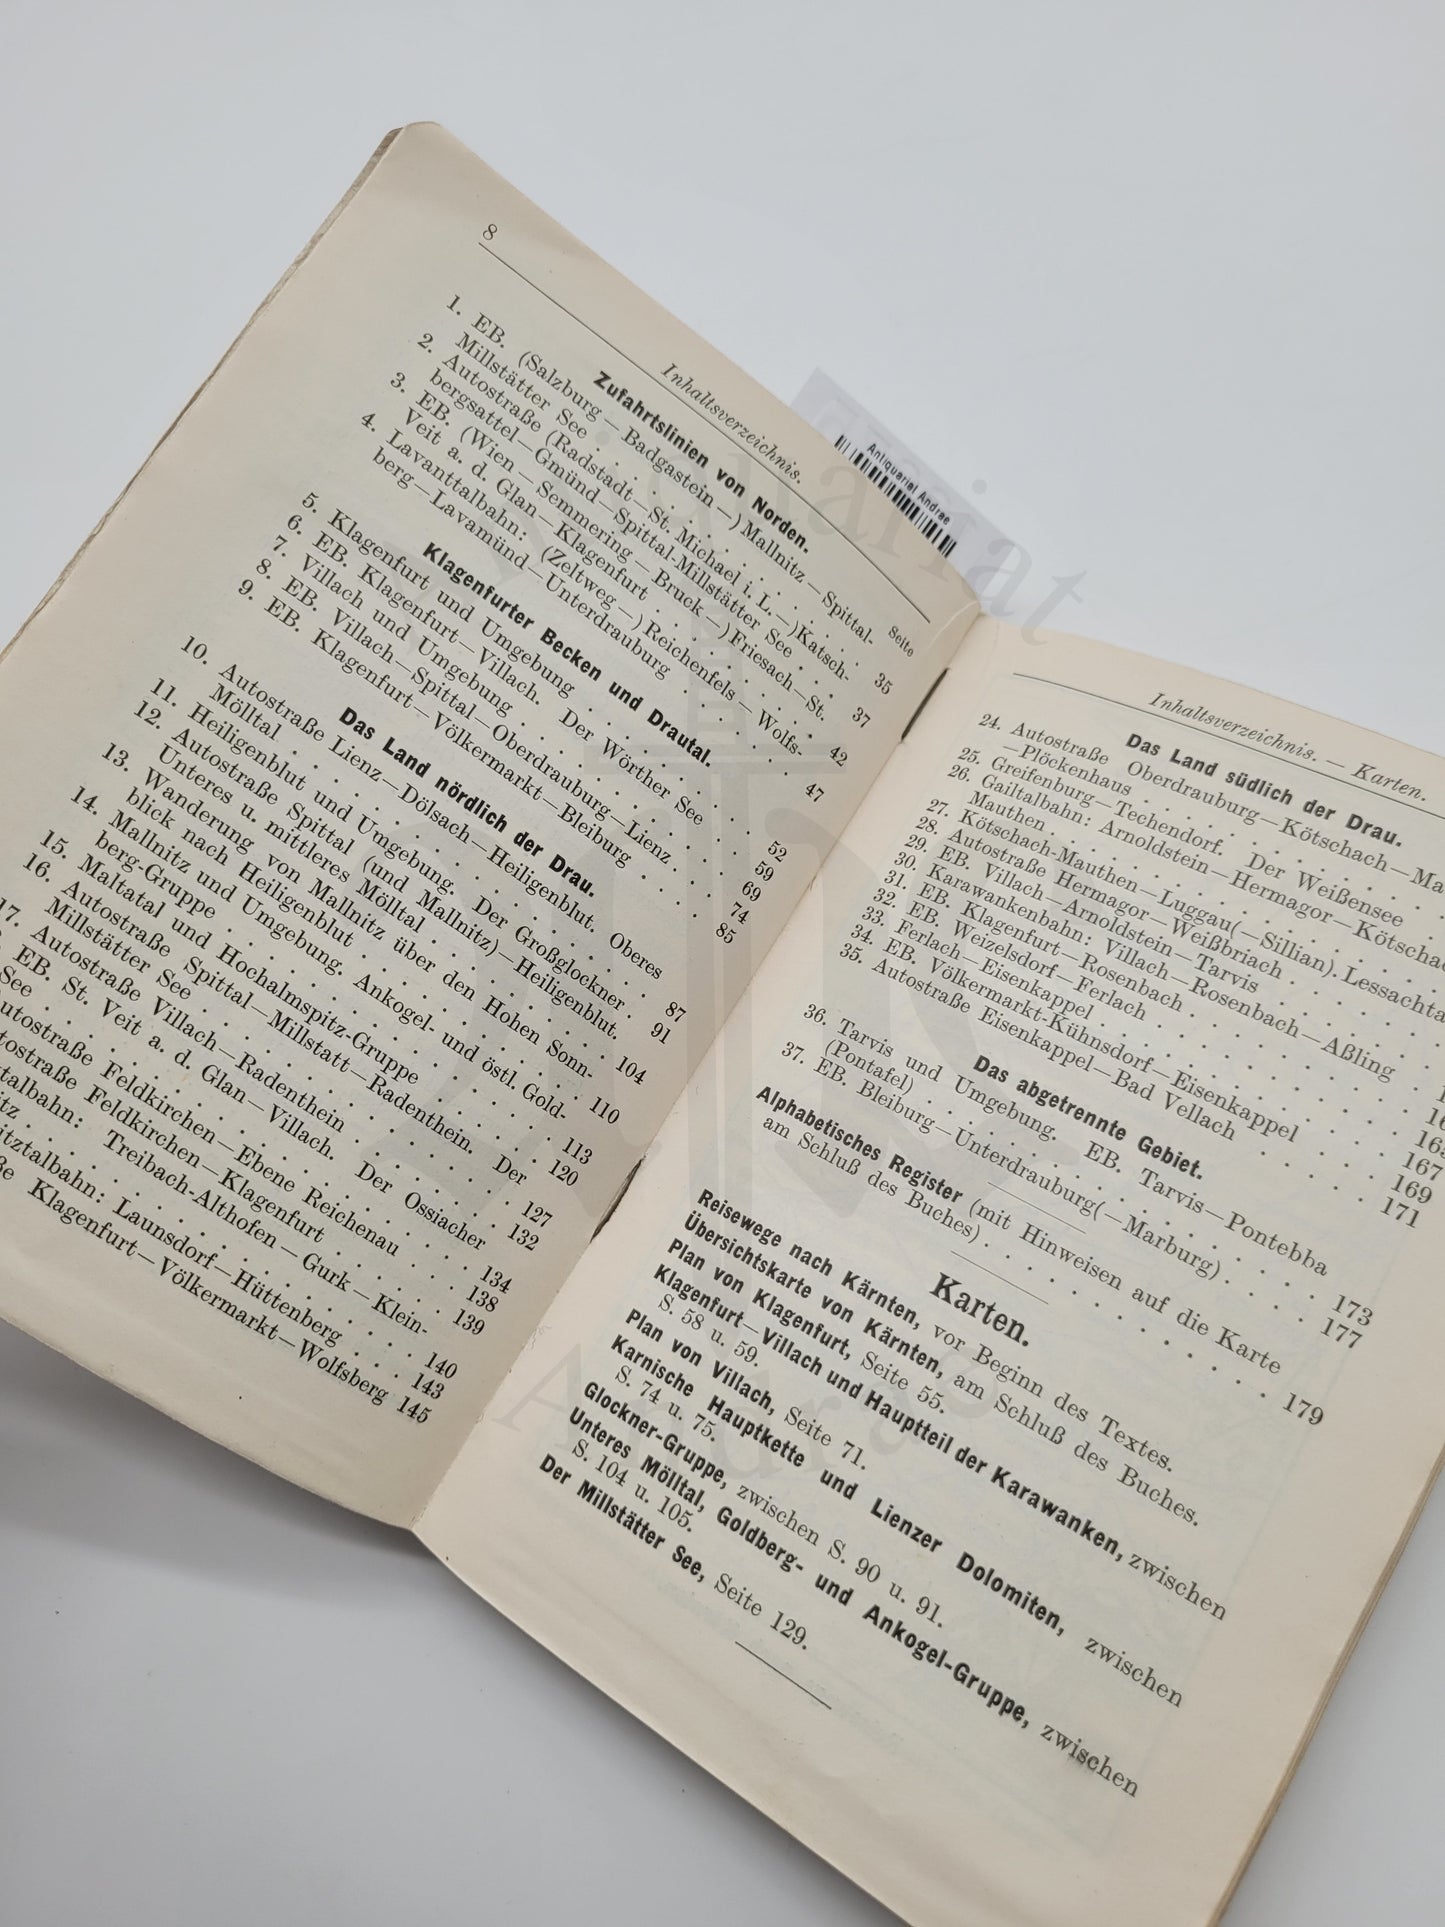 8
Inhaltsverzeichnis.
Seite
Zufahrtslinien von Norden.
1. EB. (Salzburg—Badgastein—)Mallnitz—Spittal-
Millstätter See . . . . . . . . 35
2. Autostraße (Radstadt—St. Michael i. L.—)Katsch-
bergsattel—Gmünd—Spittal-Millstätter See . . . 37
3. EB. (Wien—Semmering—Bruck—)Friesach—St.
Veit a. d. Glan—Klagenfurt . . . . . . 42
4. Lavanttalbahn: (Zeltweg—)Reichenfels—Wolfs-
berg—Lavamünd—Unterdrauburg . . . . . 47
Klagenfurter Becken und Drautal.
5. Klagenfurt und Umgebung . . . . . . 52
6. EB. Klagenfurt—Villach. Der Wörther See . . 59
7. Villach und Umgebung . . . . . . 69
8. EB. Villach—Spittal—Oberdrauburg—Lienz . . . 74
9. EB. Klagenfurt—Völkermarkt—Bleiburg . . . . 85
Das Land nördlich der Drau.
10. Autostraße Lienz—Dölsach—Heiligenblut. Oberes
Mölltal . . . . . . . . 87
11. Heiligenblut und Umgebung. Der Großglockner . 91
12. Autostraße Spittal (und Mallnitz)—Heiligenblut.
Unteres u. mittleres Mölltal . . . . . . 104
13. Wanderung von Mallnitz über den Hohen Sonn-
blick nach Heiligenblut . . . . . . 110
14. Mallnitz und Umgebung. Ankogel- und östl. Gold-
berg-Gruppe . . . . . . . . 113
15. Maltatal und Hochalmspitz-Gruppe . . . . . 120
16. Autostraße Spittal—Millstatt—Radenthein. Der
Millstätter See . . . . . . . . 127
17. Autostraße Villach—Radenthein . . . . . 132
EB. St. Veit a. d. Glan—Villach. Der Ossiacher
See . . . . . . . . 134
Autostraße Feldkirchen—Ebene Reichenau . . . 138
Feldkirchen—Klagenfurt . . . . . 139
Treibach-Althofen—Gurk—Klein-
. . . . . . . . 140
Launsdorf—Hüttenberg . . . . 143
Klagenfurt—Völkermarkt—Wolfsberg 145
Inhaltsverzeichnis. — Karten.
Das Land südlich der Drau.
24. Autostraße Oberdrauburg—Kötschach—
—Plöckenhaus . . . . . . . .
25. Greifenburg—Techendorf. Der Weißensee . .
26. Gailtalbahn: Arnoldstein—Hermagor—
Mauthen . . . . . . . .
27. Kötschach-Mauthen—Luggau(—Sillian).
28. Autostraße Hermagor—Weißbriach . . . .
29. EB. Villach—Arnoldstein—Tarvis . . . .
30. Karawankenbahn: Villach—Rosenbach—Aßling .
31. EB. Klagenfurt—Rosenbach . . . . . .
32. EB. Weizelsdorf—Ferlach . . . . . .
33. Ferlach—Eisenkappel . . . . . . 167
34. EB. Völkermarkt-Kühnsdorf—Eisenkappel . . . 169
35. Autostraße Eisenkappel—Bad Vellach . . . . 171
Das abgetrennte Gebiet.
36. Tarvis und Umgebung. EB. Tarvis—Pontebba
(Pontafel) . . . . . . . . 173
37. EB. Bleiburg—Unterdrauburg(—Marburg) . . . 177
Alphabetisches Register (mit Hinweisen auf die Karte
am Schluß des Buches) . . . . . . 179
Karten.
Reisewege nach Kärnten, vor Beginn des Textes.
Übersichtskarte von Kärnten, am Schluß des Buches.
Plan von Klagenfurt, Seite 55.
Klagenfurt—Villach und Hauptteil der Karawanken, zwischen
S. 58 u. 59.
Plan von Villach, Seite 71.
Karnische Hauptkette und Lienzer Dolomiten, zwischen
S. 74 u. 75.
Glockner-Gruppe, zwischen S. 90 u. 91.
Unteres Mölltal, Goldberg- und Ankogel-Gruppe, zwischen
S. 104 u. 105.
Der Millstätter See, Seite 129.
Antiquariat Andrae
Antiquariat
Andrae